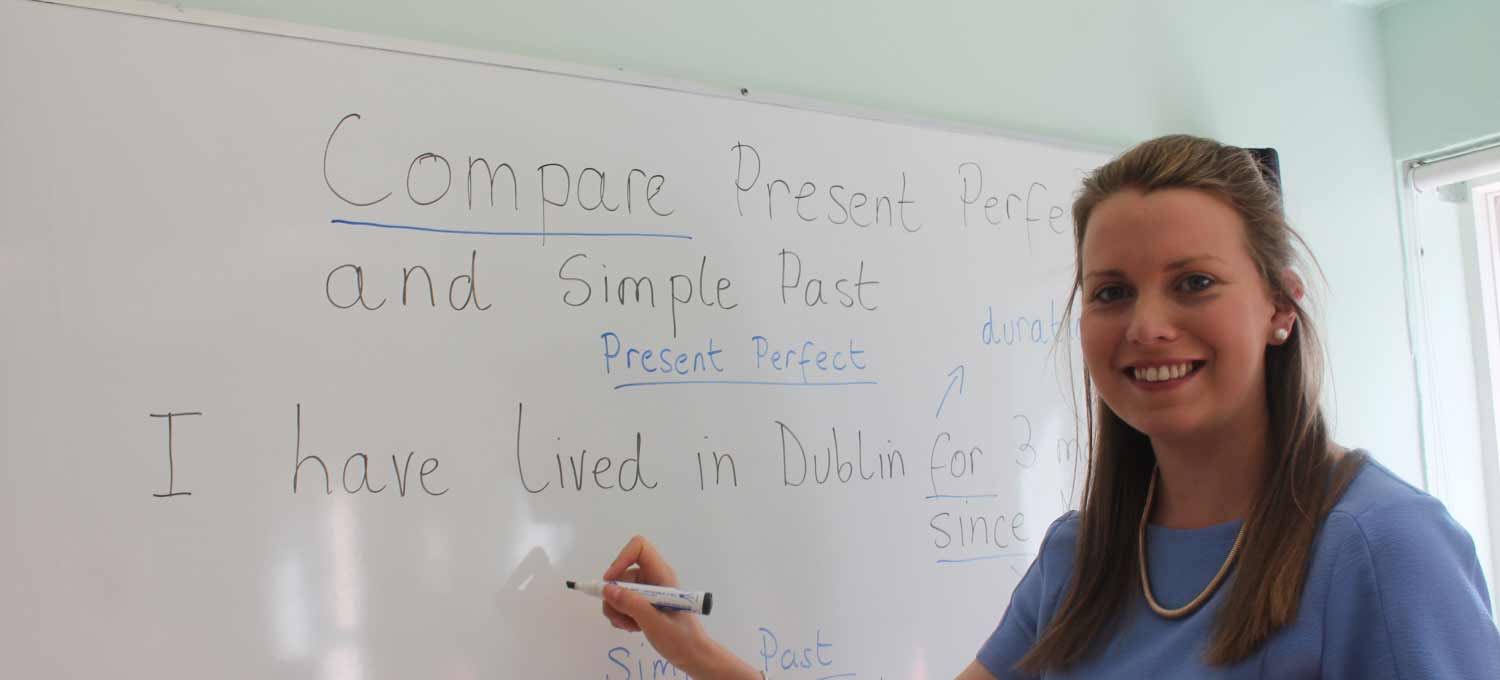 Compare Present
and Simple Past
Present Perfect
I have lived in Dublin for 3
since
Past